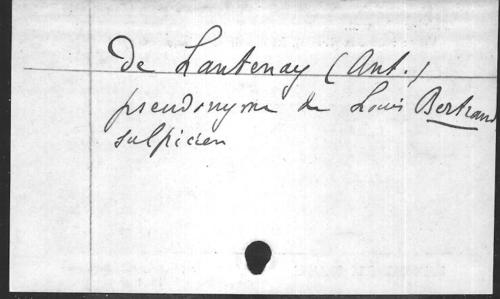 De Lantenay (Ant.)
pseudonyme de Louis Bertrand
sulpicien